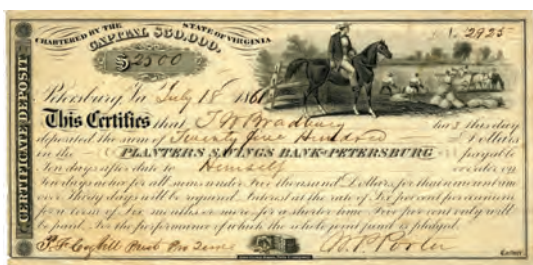 CHARTERED BY THE STATE OF VIRGINIA
CAPITAL $60,000.
N. 2925
$2500
CERTIFICATE DEPOSIT
Petersburg, Va July 18 1861
This Certifies that T W Bradbury has this day
deposited the sum of Twenty five Hundred Dollars
in the PLANTERS SAVINGS BANK OF PETERSBURG payable
Ten days after date to Himself or order, on
Ten days notice for all sums under Five thousand Dollars, for that amount and
over Thirty days will be required. Interest at the rate of Six per cent per annum
for a term of Six months or more, for a shorter time Five per cent only will
be paid. For the performance of which the whole joint fund is pledged.